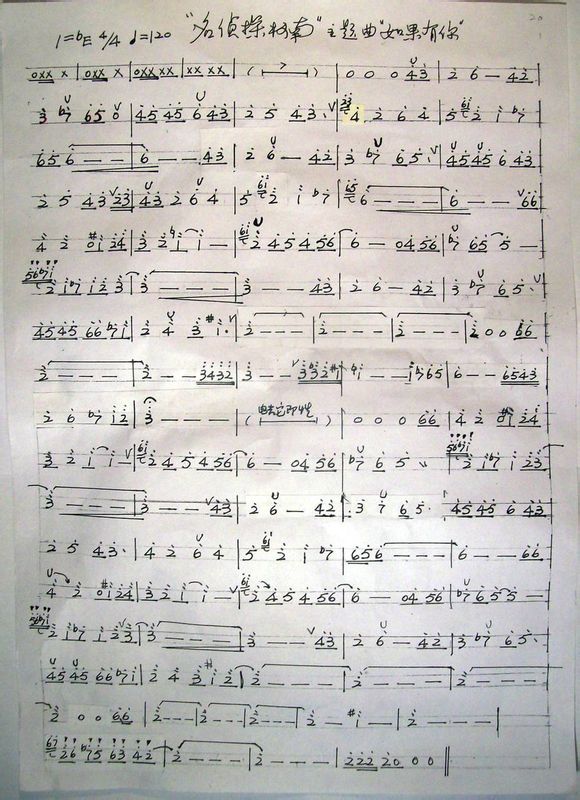 1=♭E 4/4 ♩=120 "名侦探柯南"主题曲"如果有你" 20
0XX X | 0XX X | 0XXX XX | XX XX | ( 7 ) | 0 0 0 43 | 2 6 — 42 |
3 ♭7 65 0 | 45 45 6 43 | 2 5 43· | 4 2 6 4 | 5 2 1 ♭7 |
65 6 — — — | 6 — — 43 | 2 6 — 42 | 3 ♭7 65· | 45 45 6 43 |
2 5 43 23 | 43 2 6 4 | 5 2 1 ♭7 | 6 — — — | 6 — — 66 |
4 2 #01 24 | 3 2 1 1 — | 2 45 45 46 | 6 — 04 56 | ♭7 65 5 — |
2 1♭7 12 3 | 3 — — — | 3 — — 43 | 2 6 — 42 | 3 ♭7 65· |
45 45 66 ♭71 | 2 4 3 #1· | 2 — — — | 2 — — — | 2 — — — | 2 0 0 66 |
2 — — — | 2 — — 3432 | 3 — — 332#1 | ♮1 — — 1♭765 | 6 — — 6543 |
2 6 ♭7 12 | 3 — — — | ( ) | 0 0 0 66 | 4 2 #01 24 |
3 2 1 1 — | 2 45 45 56 | 6 — 04 56 | ♭7 6 5 | 2 1♭7 1 23 |
3 — — — | 3 — — 43 | 2 6 — 42 | 3 7 65· | 45 45 6 43 |
2 5 43· | 4 2 6 4 | 5 2 1 ♭7 | 656 — — — | 6 — — 66 |
4 2 #01 24 | 3 2 1 1 — | 2 45 45 56 | 6 — 04 56 | ♭7 65 5 — |
2 1♭7 12 3 | 3 — — — | 3 — — 43 | 2 6 — 42 | 3 ♭7 65· |
45 45 66 ♭71 | 2 4 3 #1 2 | 2 — — — | 2 — — — | 2 — — — |
2 0 0 66 | 2 — — — | 2 — — — | 2 — — — | 2 — #1 — | 2 — — — |
26 ♭75 63 42 | 2 — — — | 2 — — — | 222 20 0 0 ||